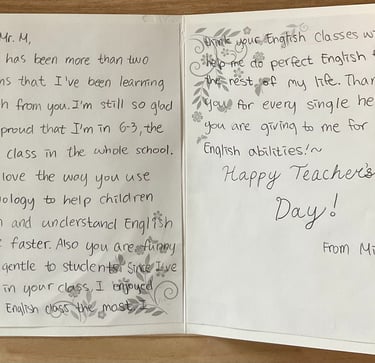 Mr. M,
has been more than two
ns that I've been learning
h from you. I'm still so glad
proud that I'm in 6-3, the
class in the whole school.
love the way you use
ology to help children
n and understand English
faster. Also you are funny
gentle to students. Since I've
in your class, I enjoyed
English class the most. I
think your English classes w
help me do perfect English f
the rest of my life. Than
you for every single he
you are giving to me for
English abilities!~
Happy Teacher's
Day!
From Mi